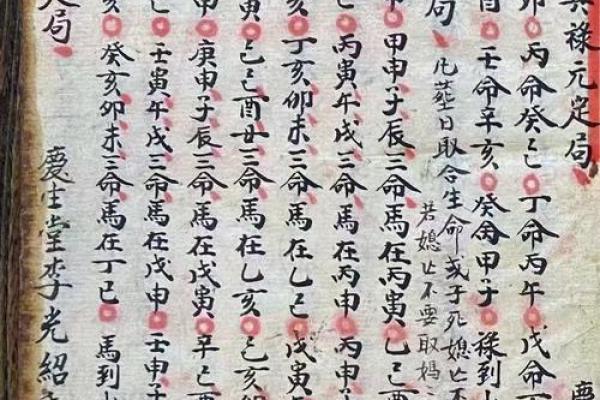 祿元定局
丙命癸巳 丁命丙午 戊命
酉 壬命辛亥 癸命甲子 祿到
局
凡塟日取合生命或于死媳亡不
若媳亡不要取媽
甲申子辰三命馬在丙寅 乙巳酉
丙寅午戌三命馬在丙申 丙申
亥 丁亥卯未三命馬在乙巳 戊寅
寅 己巳酉丑三命馬在乙亥 己亥卯
申 庚申子辰三命馬在戊寅 辛巳酉
巳 壬寅午戌三命馬在戊申 壬申子
亥 癸亥卯未三命馬在丁巳 馬到
局
慶生堂李光紹